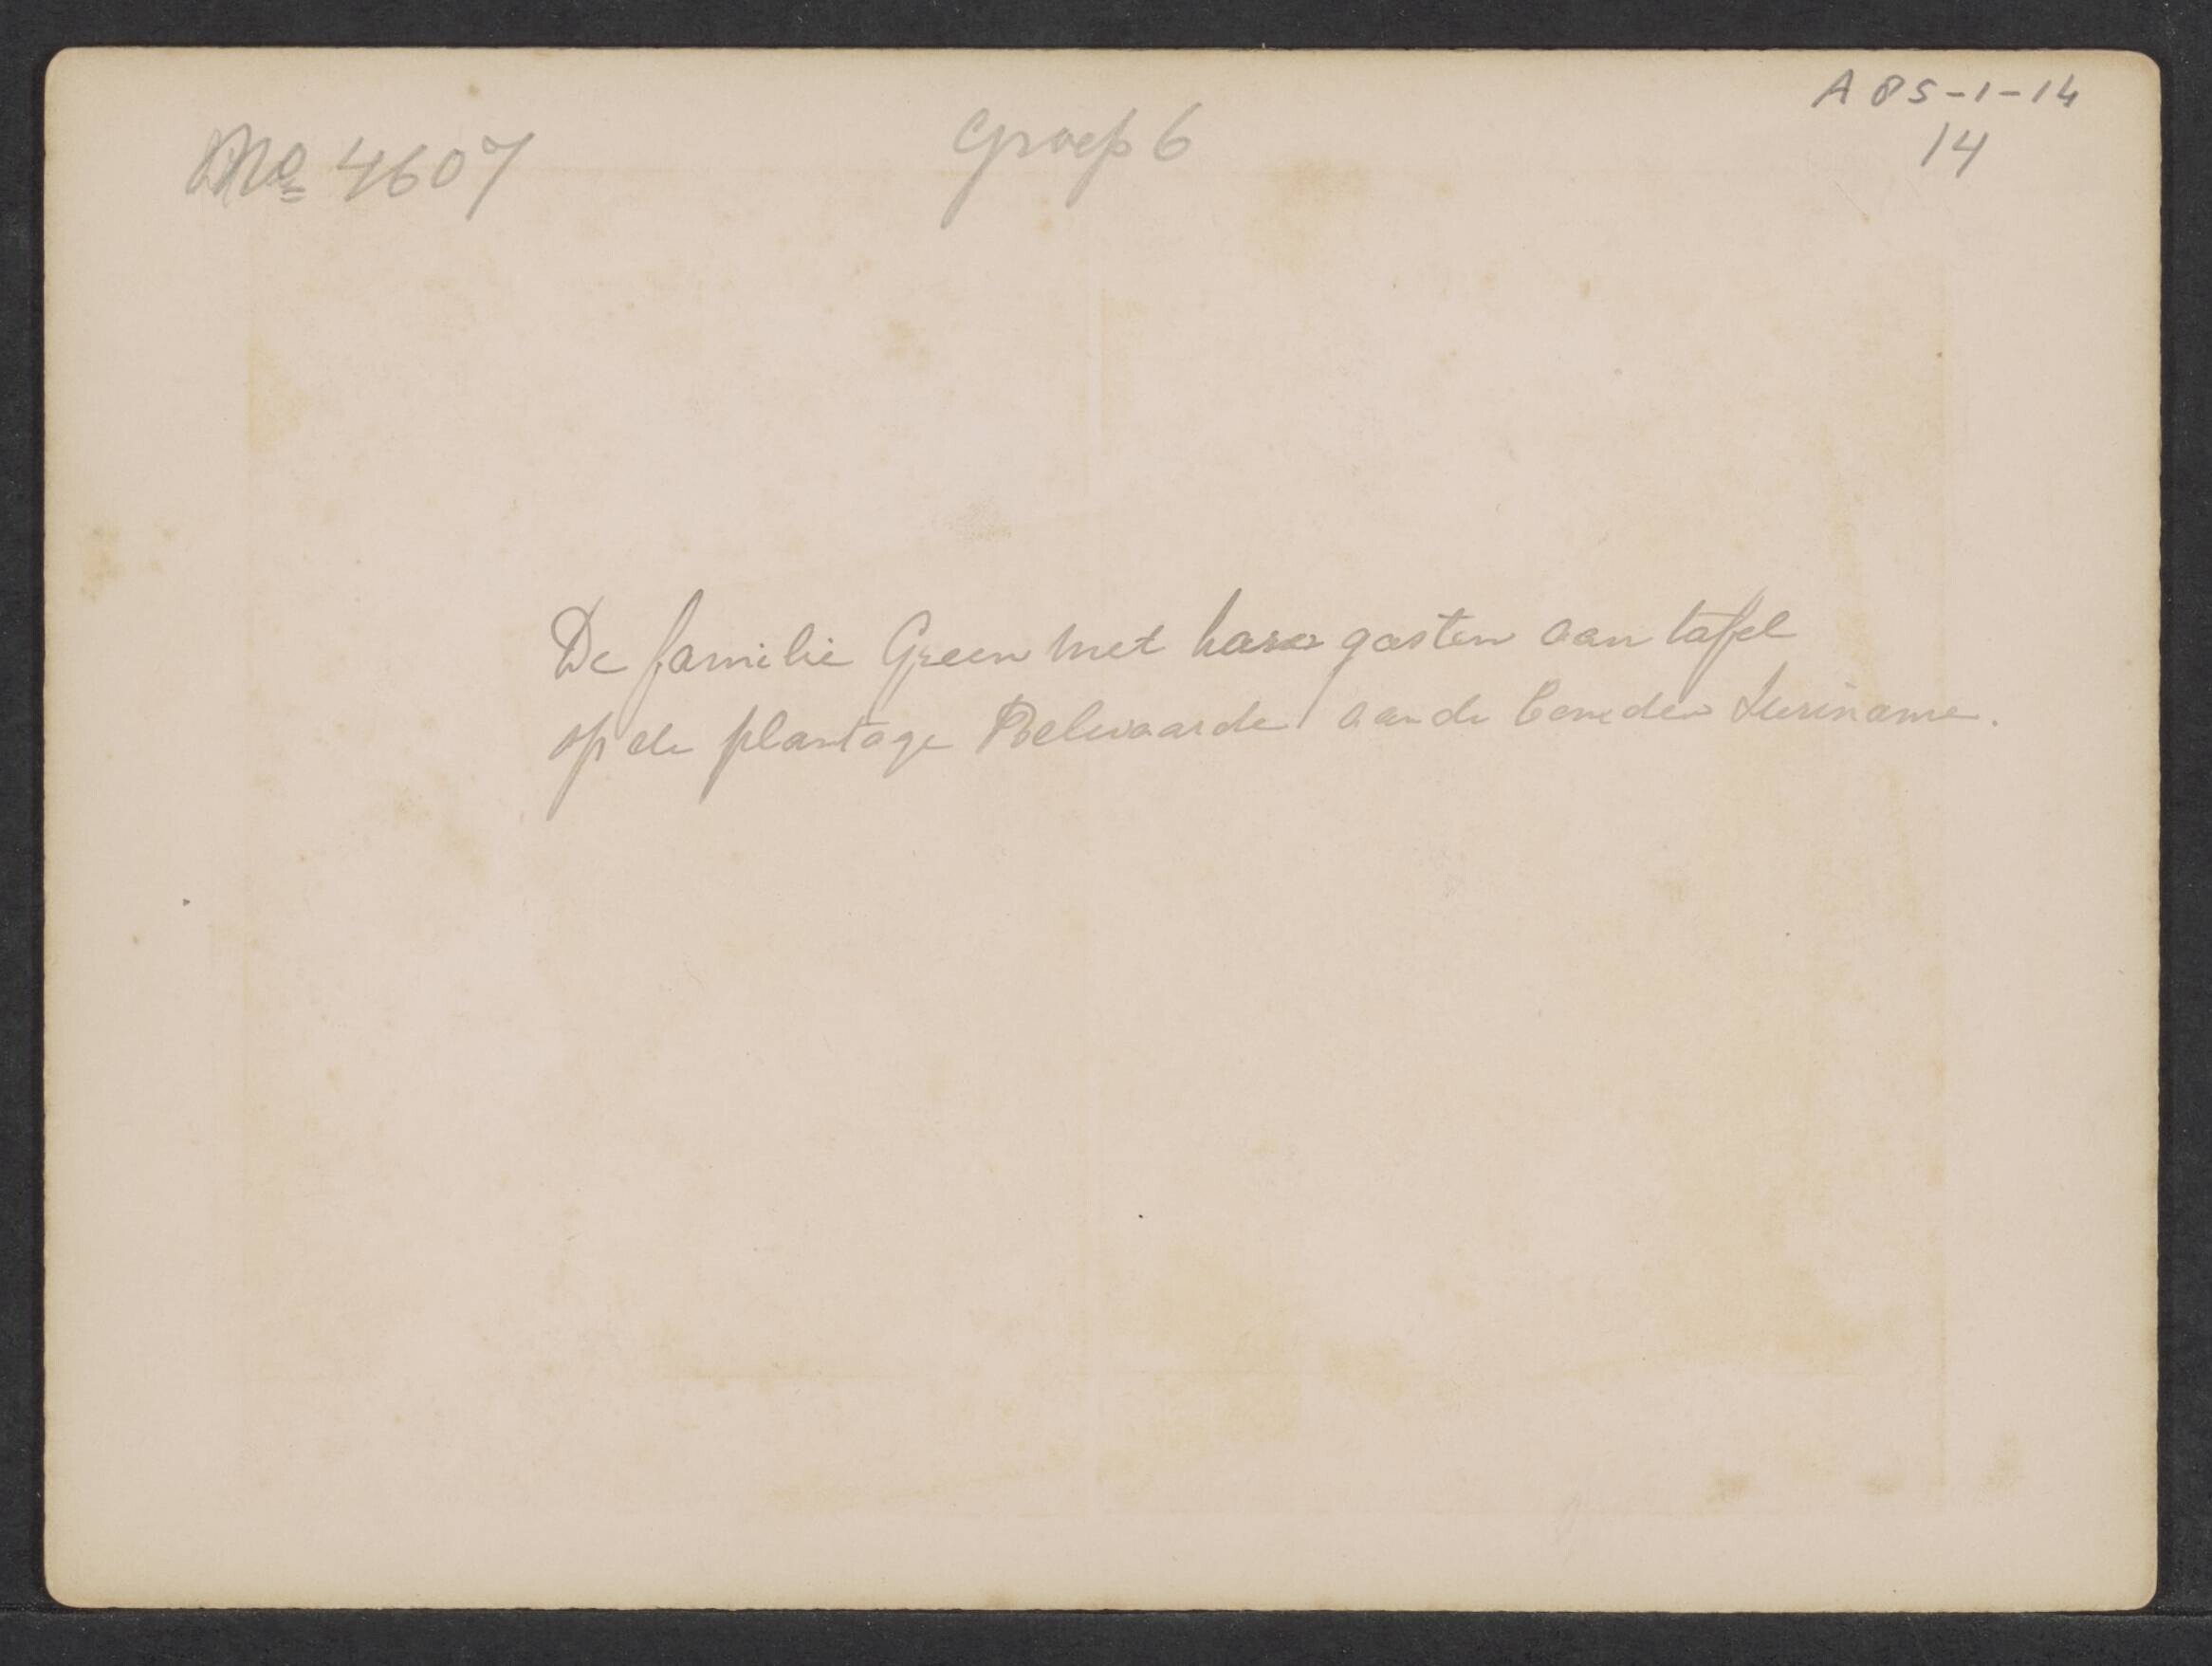 No 4607
Groep 6
A 85-1-14
14
De familie Green met hare gasten aan tafel
op de plantage Belwaarde aan de beneden Suriname.